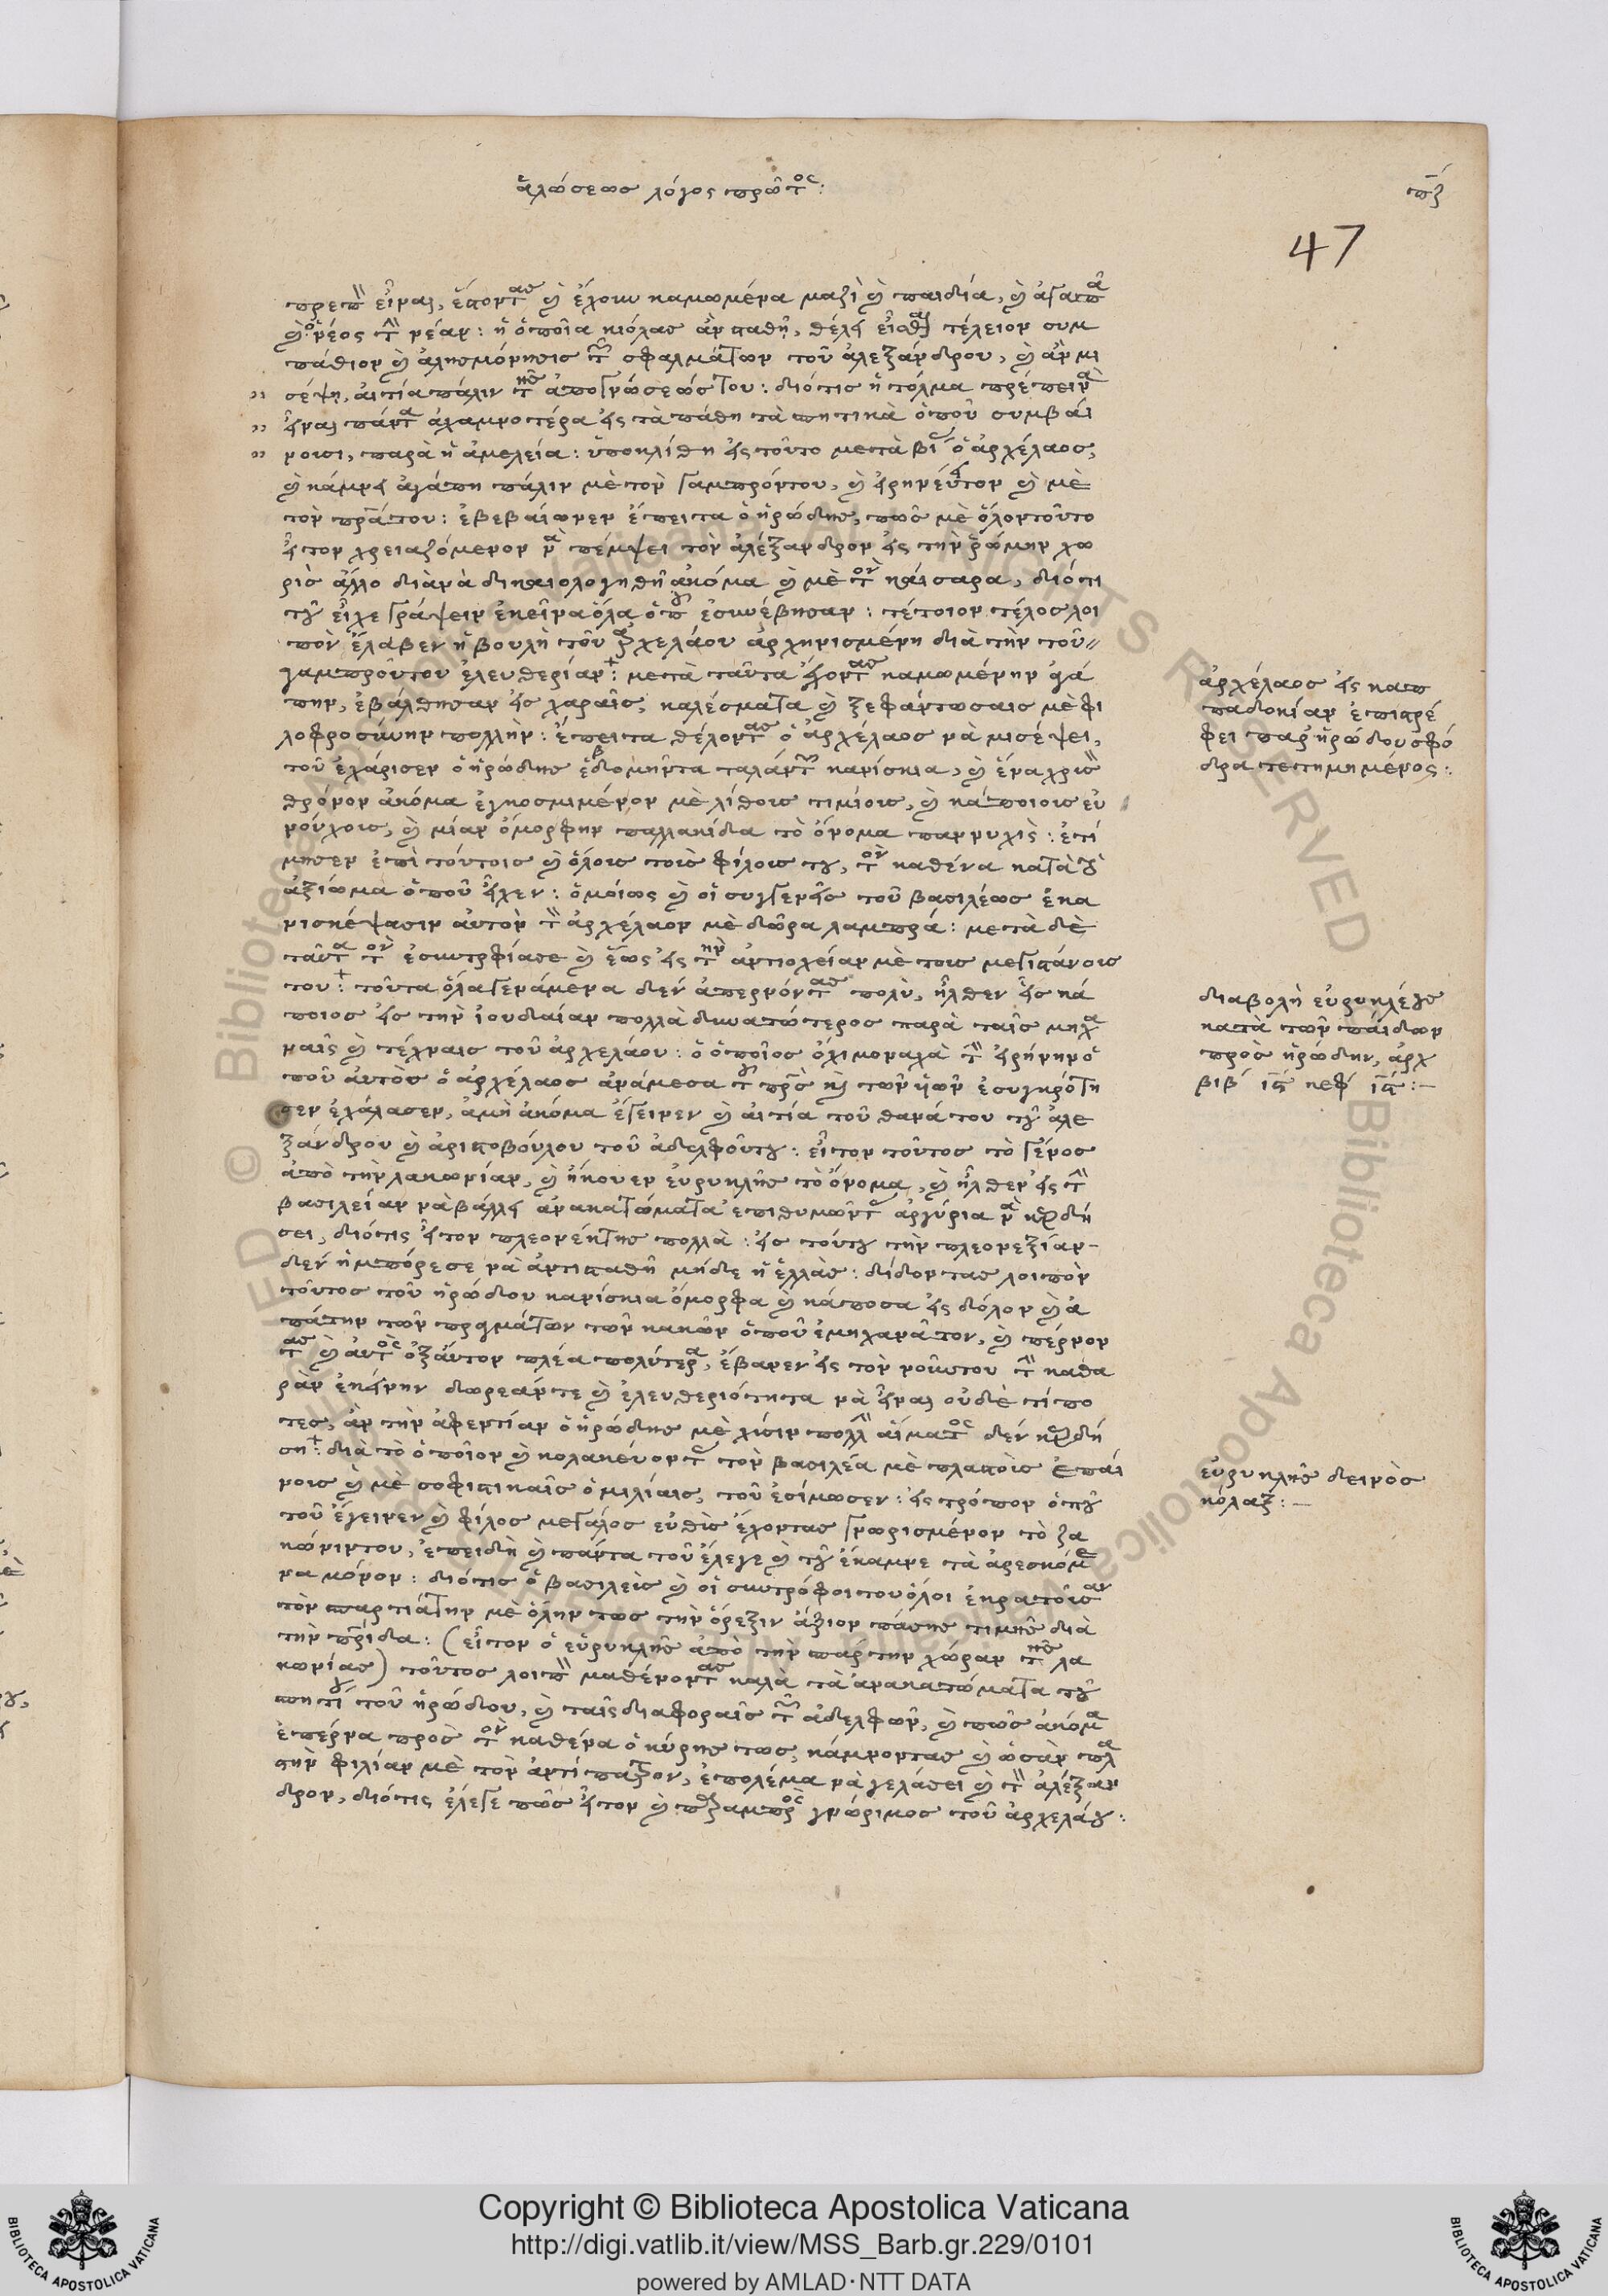 ἁλώσεως λόγος πρῶτος:
πζ
47
πρεπὸν εἶναι, ἔστοντας καὶ ἔχουν καμωμένα μαζὶ καὶ παιδιά, καὶ ἀγαπᾶ
καὶ ὁ νέος τὴν νέαν: ἡ ὁποῖα κιόλας ἂν σταθῆ, θέλει εἶσθαι τέλειον συμ
πάθιον καὶ ἀλησμόνησις τῶν σφαλμάτων τοῦ ἀλεξάνδρου, καὶ ἂν μι
σέψη, αἰτία πάλιν τῆς ἀπογνώσεώς του: διότις ἡ τόλμα πρέπει νὰ
εἶναι πάντα ἀχαμνοτέρα εἰς τὰ πάθη τὰ σπητικὰ ὁποῦ συμβαί
νουσι, παρὰ ἡ ἀμελεία: ὑποκλίθη εἰς τοῦτο μετὰ βίας ὁ ἀρχέλαος,
καὶ κάμνει ἀγάπη πάλιν μὲ τὸν γαμπρόντου, καὶ εἰρηνεύει τον καὶ μὲ
τὸν πράτου: ἐβεβαίωνεν ἔπειτα ὁ ἡρώδης, πῶς μὲ ὅλον τοῦτο
εἶτον χρειαζόμενον νὰ πέμψει τὸν ἀλέξανδρον εἰς τὴν ῥώμην χω
ρὶς ἄλλο διὰ νὰ δικαιολογηθῆ ἀκόμα καὶ μὲ τὸν καίσαρα, διότι
τοῦ εἶχε γράψειν ἐκεῖνα ὅλα ὁποῦ ἐσυνέβησαν: τέτοιον τέλος λοι
πὸν ἔλαβεν ἡ βουλὴ τοῦ ἀρχελάου ἀρχηνισμένη διὰ τὴν τοῦ
γαμπροῦντου ἐλευθερίαν: μετὰ ταῦτα ἔστοντας καμωμένην ἀγά
πην, ἐβάλθησαν εἰς χαραῖς, καλέσματα καὶ ξεφάντωσαις μὲ φι
λοφροσύνην πολλὴν: ἔπειτα θέλοντας ὁ ἀρχέλαος νὰ μισέψει,
τοῦ ἐχάρισεν ὁ ἡρώδης ἑβδομῆντα ταλάντων κανίσκια, καὶ ἕνα χρυσὸν
θρόνον ἀκόμα ἐγκοσμιμένον μὲ λίθους τιμίους, καὶ κάποιους εὐ
νούχους, καὶ μίαν ὄμορφην παλλακίδα τὸ ὄνομα παννυχὶς: ἐτί
μησεν ἐπὶ τούτοις καὶ ὅλους τοὺς φίλους του, τὸν καθένα κατὰ τὸ
ἀξίωμα ὁποῦ εἶχεν: ὁμοίως καὶ οἱ συγγενεῖς τοῦ βασιλέως ἐκα
νισκέψασιν αὐτὸν τὸν ἀρχέλαον μὲ δῶρα λαμπρά: μετὰ δὲ
ταῦτα τὸν ἐσυντρόφιασε καὶ ἕως εἰς τὴν ἀντιοχείαν μὲ τους μεγιστάνους
του: τοῦτα ὅλα γενάμενα δὲν ἀπερνόντας πολὺ, ἦλθεν εἷς κά
ποιος εἰς τὴν ἰουδαίαν πολλὰ δυνατώτερος παρὰ ταῖς μηχα
ναῖς καὶ τέχναις τοῦ ἀρχελάου: ὁ ὁποῖος ὄχι μοναχὰ τὴν εἰρήνην ὁ
ποῦ αὐτὸς ὁ ἀρχέλαος ἀνάμεσα τοῦ πατρὸς καὶ τῶν υἱῶν ἐσυγκρότη
σεν ἐχάλασεν, ἀμὴ ἀκόμα ἔγεινεν καὶ αἰτία τοῦ θανάτου τοῦ ἀλε
ξάνδρου καὶ ἀριστοβούλου τοῦ ἀδελφοῦτου: εἶτον τοῦτος τὸ γένος
ἀπὸ τὴν λακωνίαν, καὶ ἤκουεν εὐρυκλῆς τὸ ὄνομα, καὶ ἦλθεν εἰς τὴν
βασιλείαν νὰ βάλλει ἀνακατώματα ἐπιθυμῶντας ἀργύρια νὰ κερδή
σει, διότις εἶτον πλεονέκτης πολλὰ: εἰς τούτου τὴν πλεονεξίαν
δὲν ἡμπόρεσε νὰ ἀντισταθῆ μήδε ἡ ἑλλὰς: δίδοντας λοιπὸν
τοῦτος τοῦ ἡρώδου κανίσκια ὄμορφα καὶ κάποσα εἰς δόλον καὶ ἀ
πάτην τῶν πραγμάτων τῶν κακῶν ὁποῦ ἐμηχανᾶτον, καὶ πέρνον
τας καὶ αὐτὸς ὀξαύτον πλέα πολύτερα, ἔβανεν εἰς τὸν νοῦντου τὴν καθα
ρὰν ἐκείνην δωρεάντε καὶ ἐλευθεριότητα νὰ εἶναι οὐδὲ τίπο
τες, ἂν τὴν ἀφεντίαν ὁ ἡρώδης μὲ χύσιν πολλὴν αἵματος δὲν κερδή
ση: διὰ τὸ ὁποῖον καὶ κολακεύοντας τὸν βασιλέα μὲ πλαστοὺς ἐπαί
νους καὶ μὲ σοφιστικαῖς ὁμιλίαις, τοῦ ἐσίμωσεν: εἰς τρόπον ὁποῦ
τοῦ ἔγεινεν καὶ φίλος μεγάλος εὐθὺς ἔχοντας γνωρισμένον τὸ ζα
κώνιντου, ἐπειδὴ καὶ πάντα τοῦ ἔλεγε καὶ τοῦ ἔκαμνε τὰ ἀρεσκόμε
να μόνον: διότις ὁ βασιλεὺς καὶ οἱ συντρόφοι του ὅλοι ἐκρατοῦσαν
τὸν σπαρτιάτην μὲ ὅλην τως τὴν ὄρεξιν ἄξιον πάσης τιμῆς διὰ
τὴν πατρίδα: (εἶτον ὁ εὐρυκλῆς ἀπὸ τὴν σπάρτην χώραν τῆς λα
κωνίας) τοῦτος λοιπὸν μαθένοντας καλὰ τὰ ἀνακατώματα τοῦ
σπητίου τοῦ ἡρώδου, καὶ ταῖς διαφοραῖς τῶν ἀδελφῶν, καὶ πῶς ἀκόμα
ἐπέρνα πρὸς τὸν καθένα ὁ κύρης τως, κάμνοντας καὶ ὡσὰν πλα
στὴν φιλίαν μὲ τὸν ἀντίπατρον, ἐπολέμα νὰ γελάσει καὶ τὸν ἀλέξαν
δρον, διότις ἔλεγε πῶς εἶτον καὶ πρόξαμπρος γνώριμος τοῦ ἀρχελάου:
ἀρχέλαος εἰς καπ
παδοκίαν ἐπιστρέ
φει παρ' ἡρώδου σφό
δρα τετιμημένος:
διαβολὴ εὐρυκλέους
κατὰ τῶν παίδων
πρὸς ἡρώδην, ἀρχ
βιβ ις κεφ ια:
εὐρυκλῆς δεινὸς
κόλαξ:
Copyright © Biblioteca Apostolica Vaticana
http://digi.vatlib.it/view/MSS_Barb.gr.229/0101
powered by AMLAD·NTT DATA